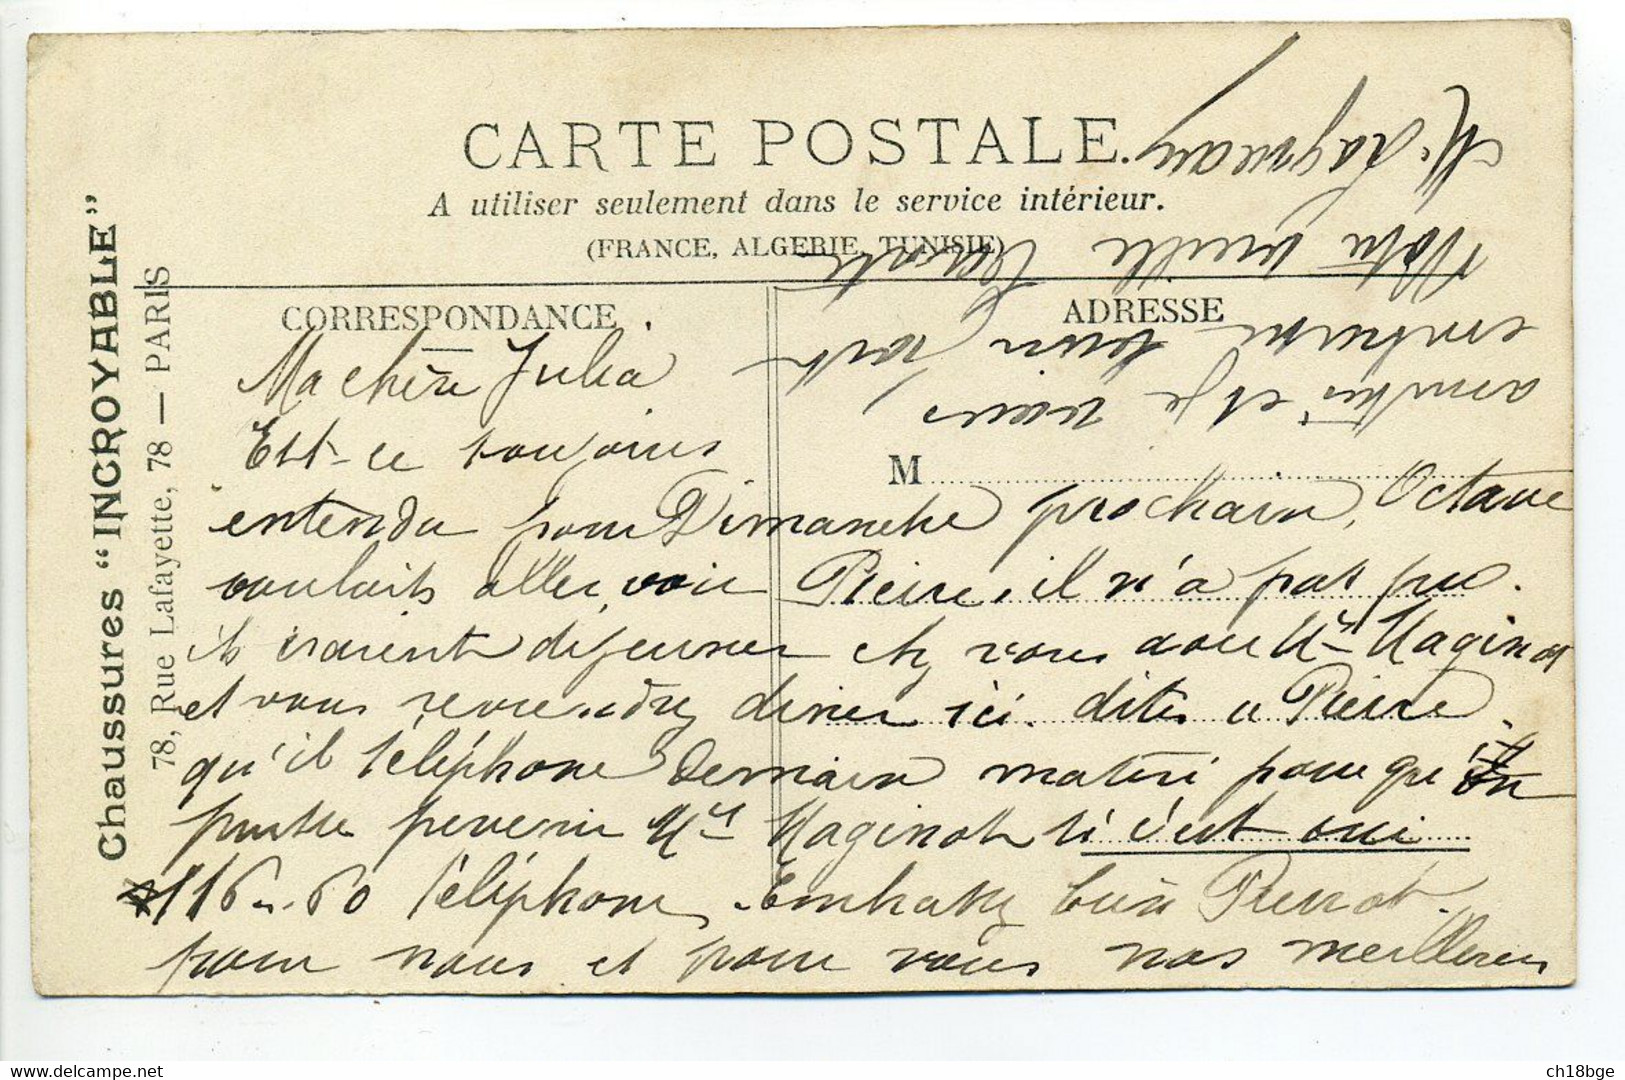 CARTE POSTALE.
A utiliser seulement dans le service intérieur.
(FRANCE, ALGERIE, TUNISIE)
CORRESPONDANCE
ADRESSE
M
Chaussures "INCROYABLE"
78, Rue Lafayette, 78 — PARIS
Ma chère Julia
Est-ce toujours
entendu pour Dimanche prochain, Octave
voulait aller voir Pierre, il n'a pas pu.
ils iraient déjeuner chez vous avec Mr Maginot
et vous reviendrez diner ici. dites a Pierre
qu'il téléphone Demain matin pour que
puisse prevenir Mr Maginot si c'est oui
116-60 Téléphone. Embrassez bien Pierrot
pour nous et pour vous nos meilleures
amitiés et je vous
embrasse bien fort
Votre vieille
ch18bge